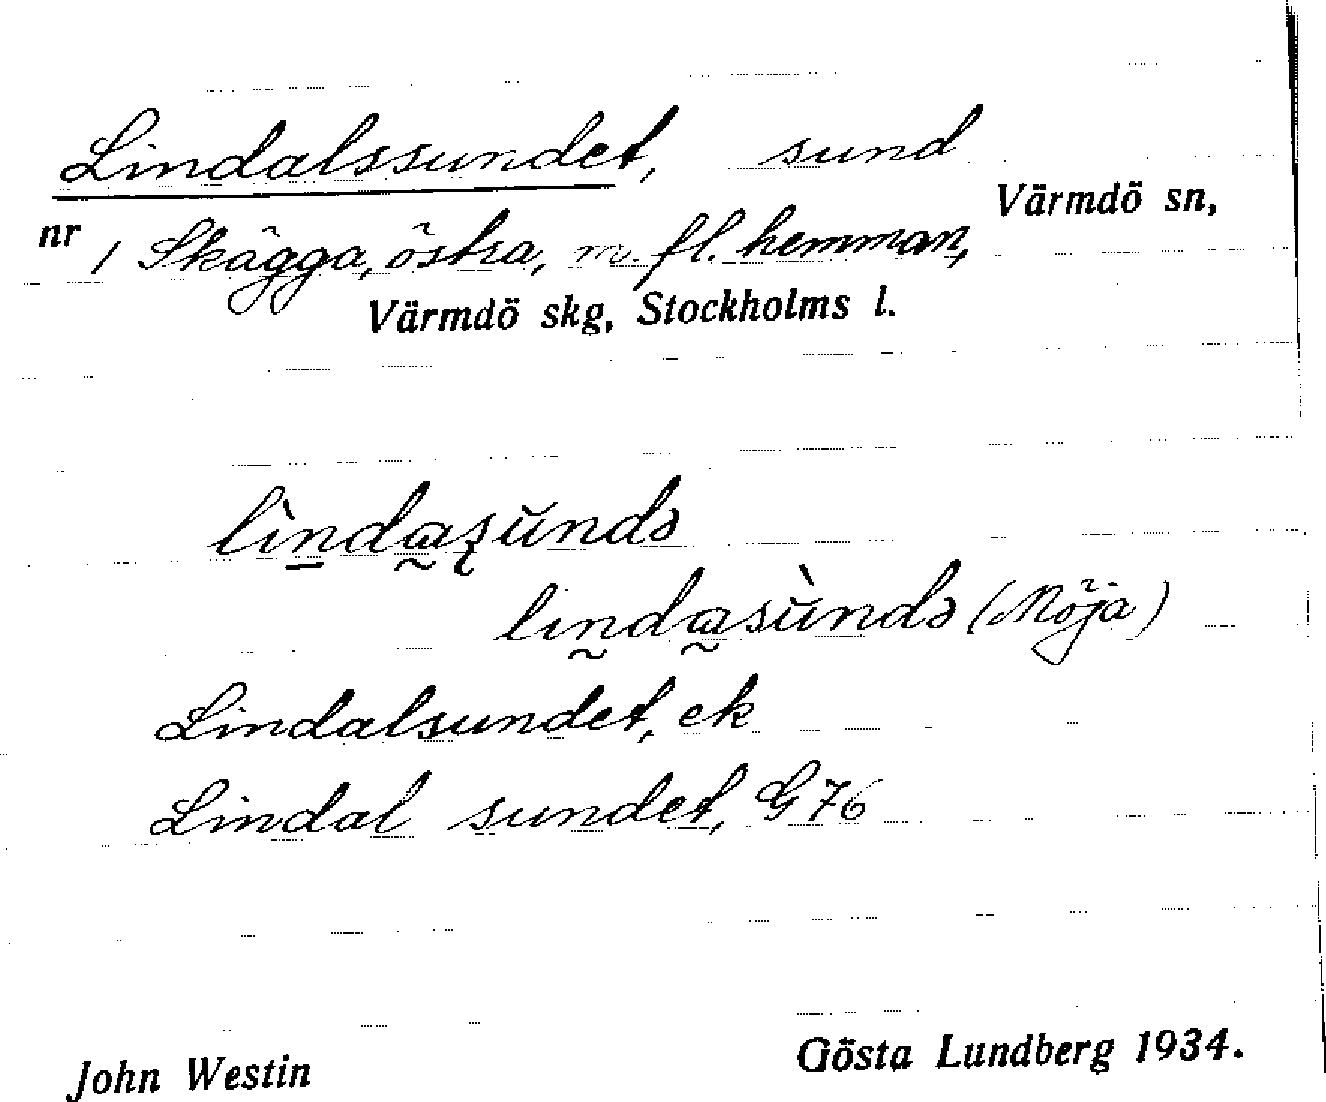 Lindalssundet, sund
Värmdö sn,
nr 1 Skägga, östra, m. fl. hemman,
Värmdö skg, Stockholms l.
lìndasŭndə
lindasùndə (Möja)
Lindalsundet, ek
Lindal sundet, G 76
John Westin
Gösta Lundberg 1934.